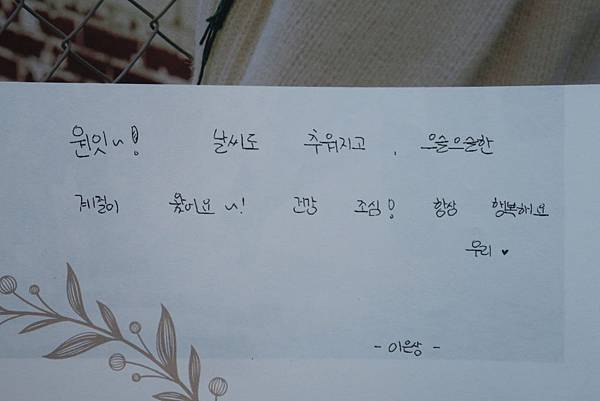 윈잇~! 날씨도 추워지고, 으슬으슬한
계절이 왔어요~! 건강 조심! 항상 행복해요
우리 ♥
- 이은상 -